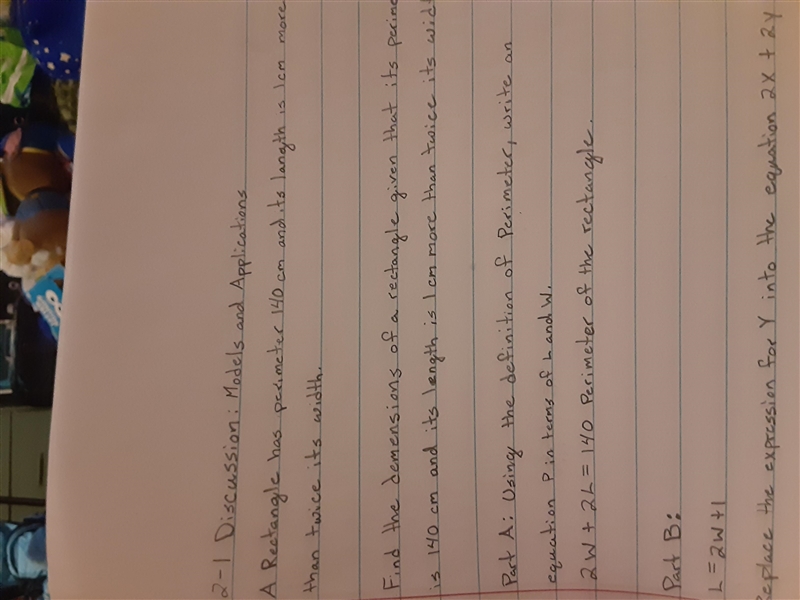 2-1 Discussion: Models and Applications
A Rectangle has perimeter 140 cm and its langth is 1cm more
than twice its width.
Find the demensions of a rectangle given that its perime
is 140 cm and its length is 1 cm more than twice its widt
Part A: Using the definition of Perimeter, write an
equation P in terms of L and W.
2W + 2L = 140 Perimeter of the rectangle.
Part B:
L = 2W+1
Replace the expression for Y into the equation 2X + 2Y